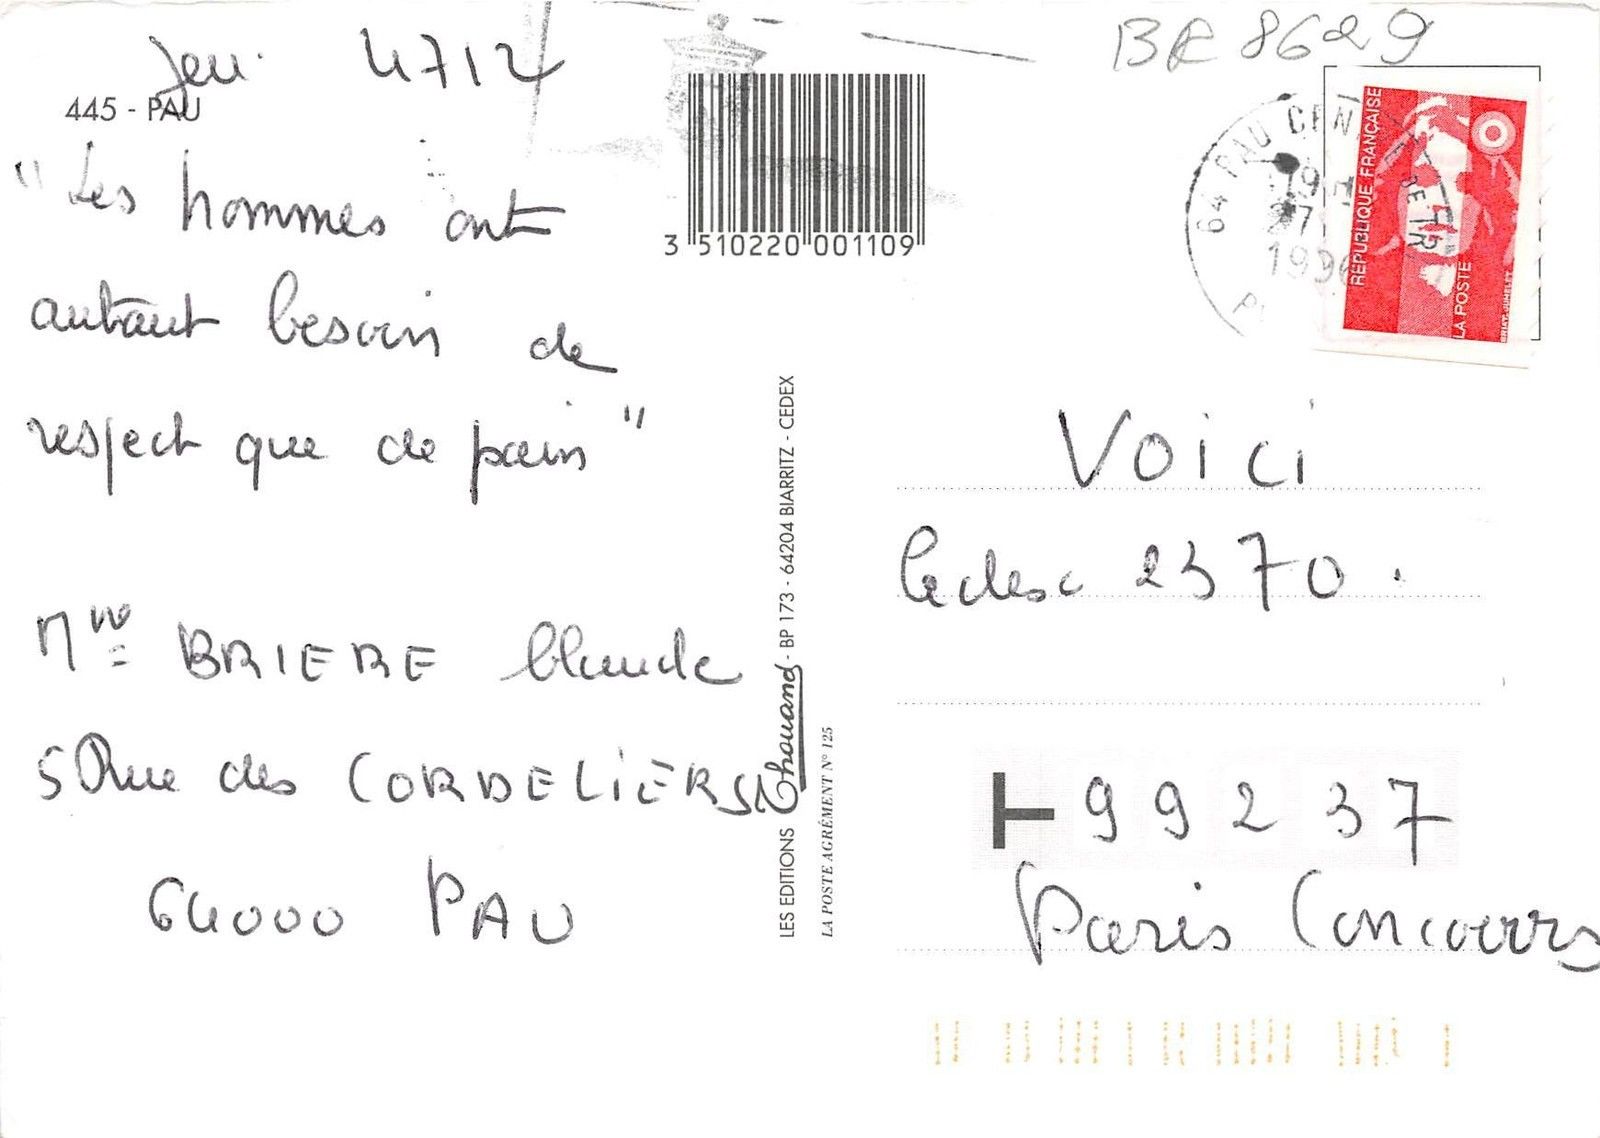 Jeu. 4712
445 - PAU
"Les hommes ont
autant besoin de
respect que de pain"
Mme BRIERE Claude
5 Rue des CORDELIERS
64000 PAU
3 510220 001109
LES EDITIONS Chouand - BP 173 - 64204 BIARRITZ - CEDEX
LA POSTE AGRÉMENT N° 125
BR 8629
64 PAU CENTRE DE TRI
19H
27
1996
REPUBLIQUE FRANÇAISE
LA POSTE
BRIAT-JUMELET
Voici
Cedex 2370.
99237
Paris Concours